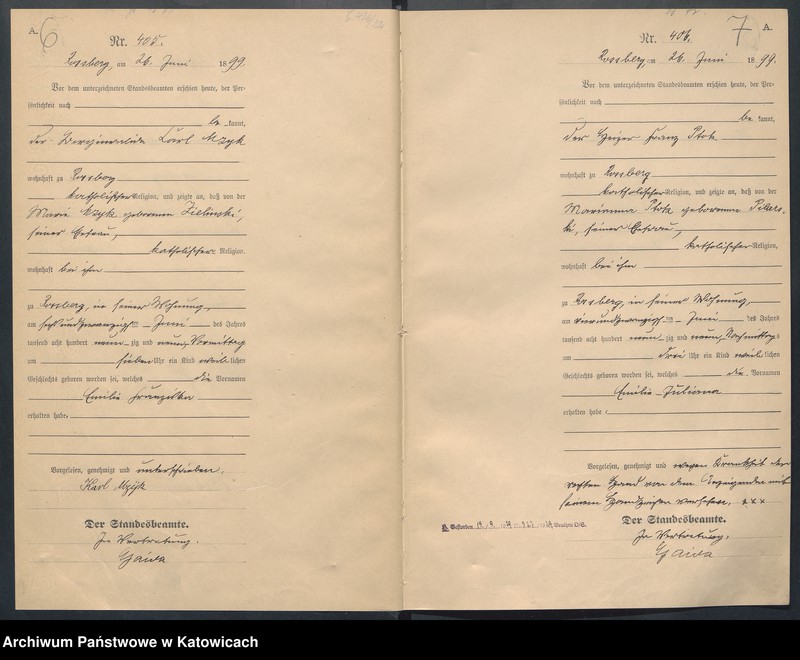 A.
6
Nr. 405.
Rossberg, am 26. Juni 1899.
Vor dem unterzeichneten Standesbeamten erschien heute, der Per-
sönlichkeit nach
be kannt,
der Berginvalide Carl Mzyk
wohnhaft zu Rossberg
katholischer Religion, und zeigte an, daß von der
Marie Mzyk geborenen Zielinski,
seiner Ehefrau,
katholischer Religion,
wohnhaft bei ihm
zu Rossberg, in seiner Wohnung,
am sechsundzwanzigsten Juni des Jahres
tausend acht hundert neunzig und neun, Vormittag
um sieben Uhr ein Kind weiblichen
Geschlechts geboren worden sei, welches die Vornamen
Emilie Franziska
erhalten habe.
Vorgelesen, genehmigt und unterschrieben.
Karl Mzyk
Der Standesbeamte.
In Vertretung.
Gaida
7
A.
Nr. 406.
Rossberg, am 26. Juni 1899.
Vor dem unterzeichneten Standesbeamten erschien heute, der Per-
sönlichkeit nach
be kannt,
der Heizer Franz Ptok
wohnhaft zu Rossberg
katholischer Religion, und zeigte an, daß von der
Marianna Ptok geborenen Pillers-
ki, seiner Ehefrau,
katholischer Religion,
wohnhaft bei ihm
zu Rossberg, in seiner Wohnung,
am vierundzwanzigsten Juni des Jahres
tausend acht hundert neunzig und neun, Nachmittags
um drei Uhr ein Kind weiblichen
Geschlechts geboren worden sei, welches die Vornamen
Emilie Juliana
erhalten habe
Vorgelesen, genehmigt und wegen Krankheit der
rechten Hand von dem Anzeigenden mit
seinem Handzeichen versehen. xxx
Gestorben
Der Standesbeamte.
In Vertretung.
Gaida
Archiwum Państwowe w Katowicach